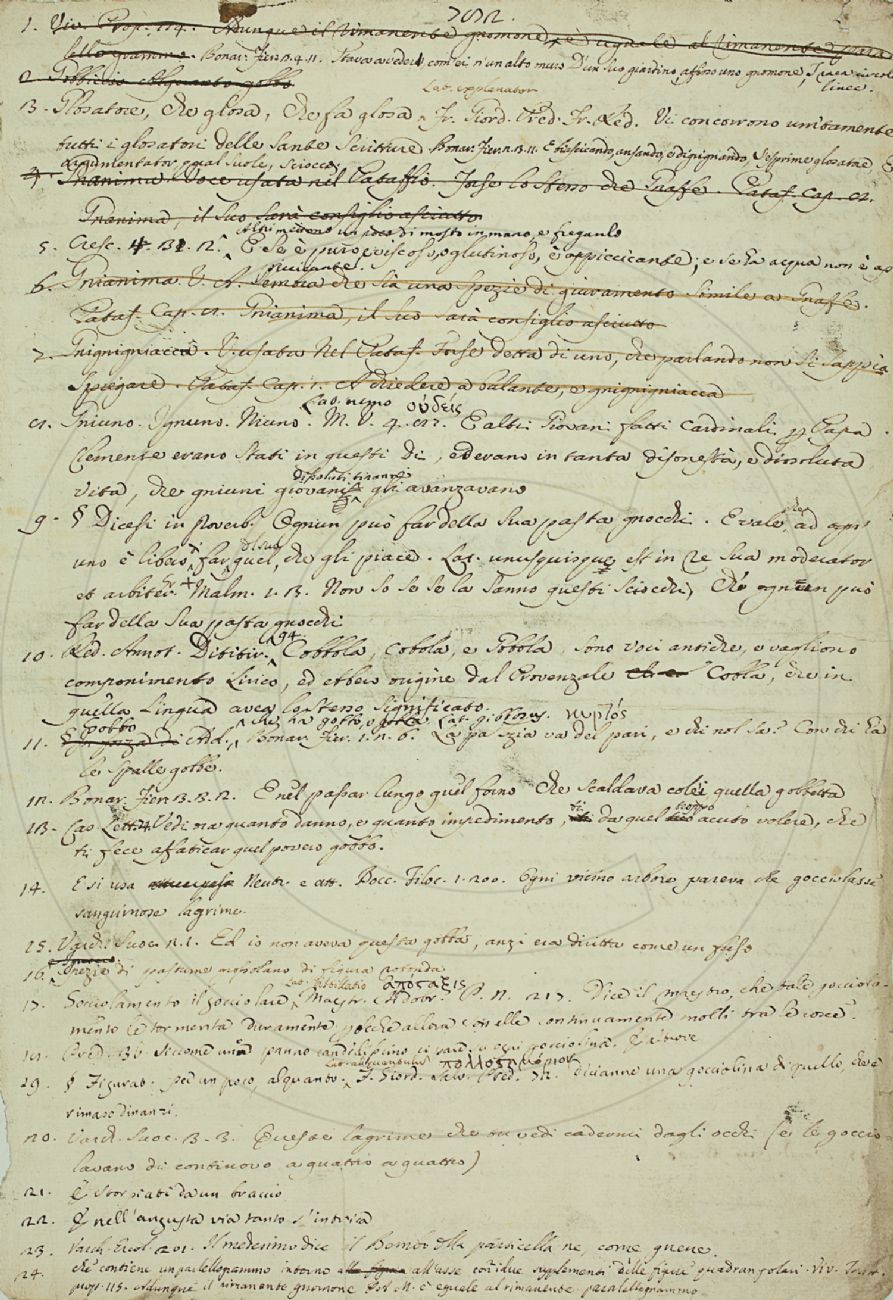 792.
1. Viv. Prop. 114. Adunque il rimanente gnomone è uguale al rimanente para
lellogrammo. Bonar. Fier. 4. 11. Stava a vedere com' ei n' un alto muro D' un suo giardino, affisso uno gnomone,
linee.
2. Gobbiccio Alquanto gobbo
Lat. explanator
3. Glosatore, che glosa, che fa glosa. Fr. Giord. Pred. Fr. Red. Vi concorrono unitamente
tutti i glosatori delle sante Scritture. Bonar. Fier. 3. 11. E fisticando, ansando, e dipignando, S' esprime glosatore E
Argumentator, qual suole, sciocco.
4. Gnanima. Voce usata nel Pataffio. Forse lo stesso che Gnaffe. Pataf. Cap. 2.
Gnanima, il suo sarà consiglio asciutto
Altri mettono un poco di mosto in mano, e freganlo
5. Cresc. 4. 31. 2. E se è puro e viscoso, o glutinoso, è appiccicante; e se ha acqua non è ap
piccicante.
6. Gnianima. V. A. Sembra che sia una spezie di giuramento simile a Gnaffe.
Pataf. Cap. 2. Gnianima, il suo sarà consiglio asciutto
7. Gnignigniacca. V. usata nel Pataf. Forse detta di uno, che parlando non si sappia
spiegare. Pataf. Cap. 1. A chiedere a balante, e gnignigniacca
Lat. nemo οὐδείς
8. Gniuno. Ignuno. Niuno. M. V. 4. E altri Giovani fatti Cardinali per Papa
Clemente erano stati in questi dì, ed erano in tanta disonestà, e dissoluta
vita, che gniuni giovani dissoluti tiranni gli avanzavano
9. § Dicesi in proverb. Ognun può far della sua pasta gnocchi. E vale, che ad ogn'
uno è libero far del suo quel, che gli piace. Lat. unusquisque est in re sua moderator
et arbiter. Malm. 1. 3. Non so se se la sanno questi sciocchi, Ch' ognun può
far della sua pasta gnocchi
10. Red. Annot. Ditir. 94. Cobbola, cobola, e Gobola, sono voci antiche, e vagliono
componimento Lirico, ed ebber origine dal Provenzale Cobla, che in
quella Lingua avea lo stesso significato.
11. Gobbo add. che ha gobbo, o gobba. Lat. gibbosus. κυρτός Bonar. Fier. 1. 2. 6. La pazzia va del pari, e chi nol sa? Con chi ha
le spalle gobbe.
12. Bonar. Fier. 3. 3. 2. E nel passar lungo quel forno che scaldava colei quella gobbetta
13. Car. Lett. Vedi ora quanto danno, e quanto impedimento, ti da quel troppo acuto volere, che
ti fece affaticar quel povero gobbo.
14. E si usa Neutr. e att. Bocc. Filoc. 1. 200. Ogni vicino arbore pareva che gocciolasse
sanguinose lagrime.
15. Varch. Suoc. 2. 1. Ed io non aveva questa gobba, anzi era diritta come un fuso
16. Spezie di pastume grossolano di figura rotonda
17. Gocciolamento il gocciolare, Lat. stillatio ἀπόσταξις Maestr. Aldobr. P. N. 217. Dice il maestro, che tale gocciola
mento le tormenta duramente, poiché allora con elle continuamente molli tra le cosce.
18. Pred. 36. siccome un panno candidissimo ci pare, e ogni gocciolina il turbe
19. § Figurat. per un poco, alquanto. F. Giord. Salv. Pred. 32. diciamne una gocciolina di quello, ch' è
rimaso dinanzi.
20. Varch. Suoc. 3. 3. Queste lagrime che tu vedi cadermi dagli occhi (ei le goccio
lavano di continovo a quattro a quattro)
21. E storpiati da un braccio
22. E nell' angusta via tanto s' intriga
23. Varch. Ercol. 201. Il medesimo dice il Bembo della particella ne, come gnene.
24. che contiene un parallellogrammo intorno all' asse co' i due supplementi delle figure quadrangolari. Viv.
prop. 115. Adunque il rimanente gnomone M. è eguale al rimanente parallellogrammo